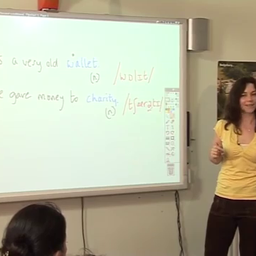 s a very old wallet (n) /wɒlɪt/
e gave money to charity (n) /tʃærətɪ/